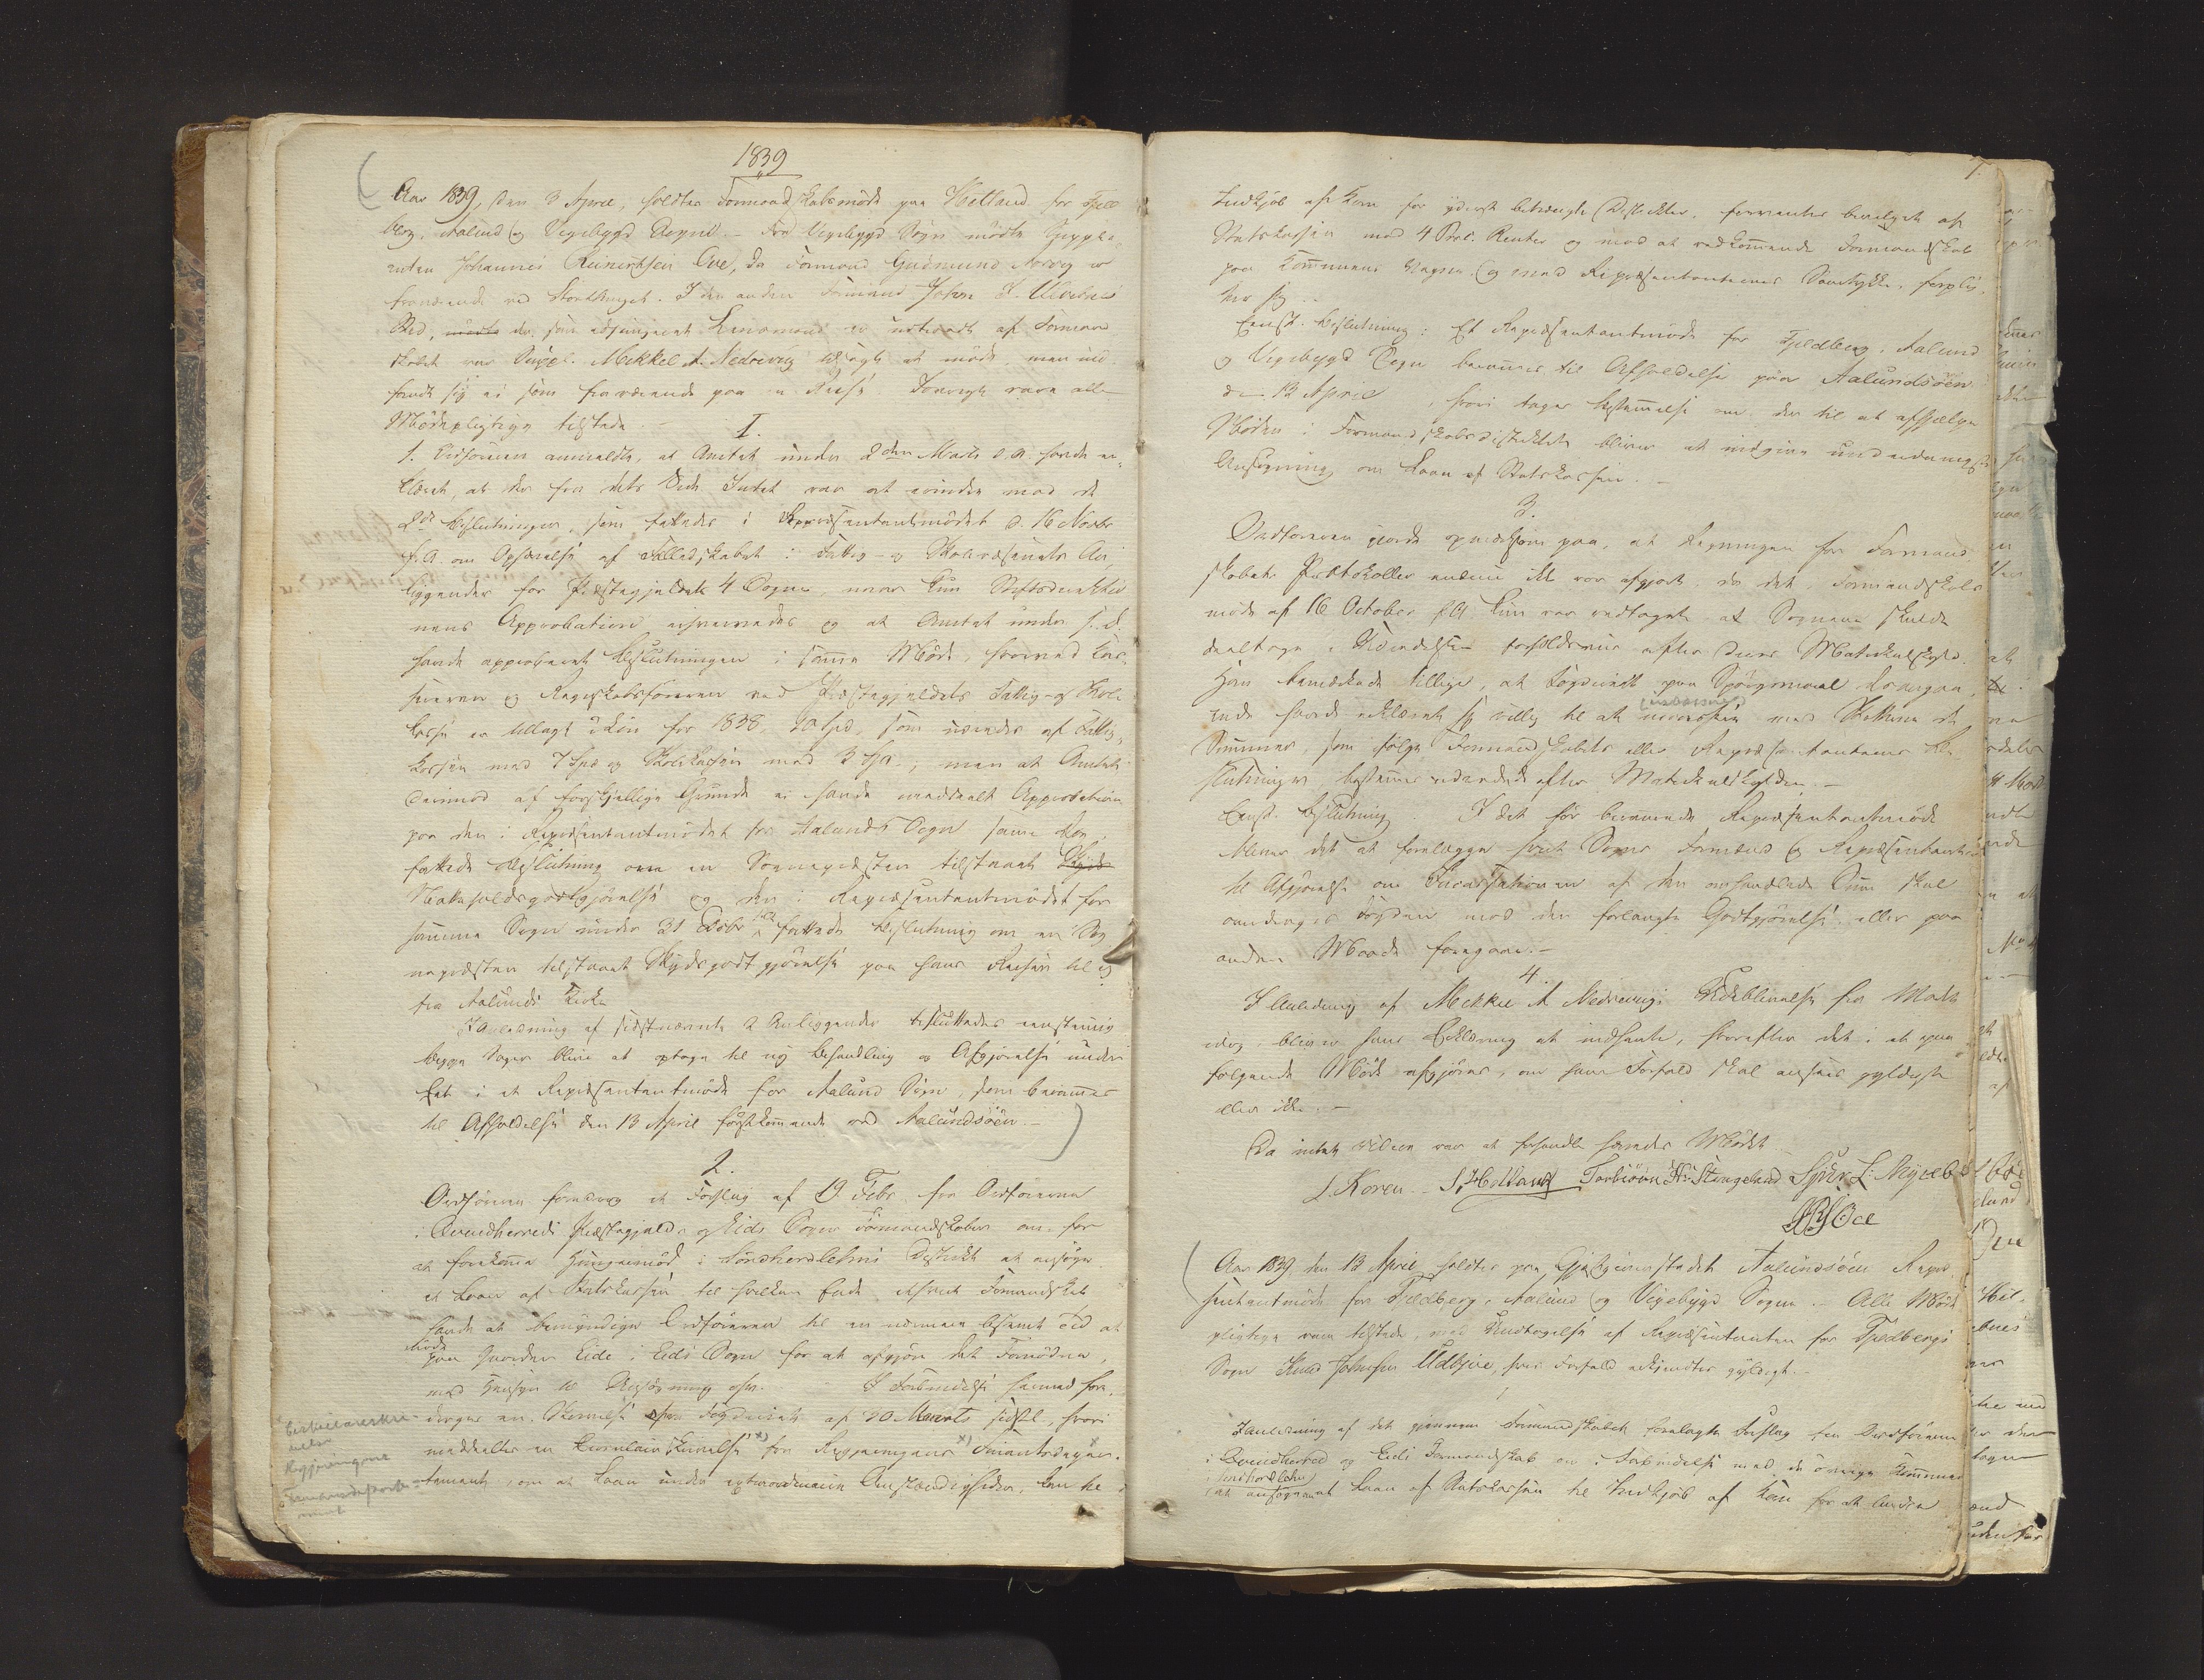 1839
Aar 1839, den 3 April, holdtes Formandskabsmöde paa Hetland for Fjeld
berg, Aalund og Vigebygd Sogne. - For Vigebygd Sogn mödte Supple-
anten Johannes Reinertsen Öve, da Formand Gudmund Norvig er
fraværende ved Storthinget. I den anden Formand John L.
Sted, mödte da som adjungeret Lensmand er udtraadt af Formand
skabet var Suppl. Mikkel A. Nedrevig tilsagt at möde, men ind
fandt sig ei som fraværende paa en Reise. Forövrigt vare alle
Mödepligtige tilstede. -
I.
1. Ordföreren anmeldte, at Amtet under 2den Marts d. A. havde er-
klæret, at der fra dets Side Intet var at erindre mod de
2de Beslutninger, som fattedes i Repræsentantmödet d. 16 Novbr
f. A. om Ophævelse af Fælledskabet i Fattig- og Skolevæsenets An-
liggender for Præstegjeldets 4 Sogne, naar kun Stiftsdirektio
nens Approbation erhvervedes og at Amtet under s. D.
havde approberet Beslutningen i samme Möde, hvorved Kas-
sereren og Regnskabsföreren ved Præstegjeldets Fattig- og Skole
kasse er tillagt i Lön for 1838, 10 Spd, som udredes af Fattig-
kassen med 7 Spd og Skolekassen med 3 Spd.; men at Amtet
derimod af forskjellige Grunde ei havde meddeelt Approbation
paa den i Repræsentantmödet for Aalunds Sogn samme Dag
fattede Beslutning om en Sognepræsten tilstaaet Skyds
Natteholdsgodtgjörelse og den i Repræsentantmödet for
samme Sogn under 31 Octbr f. A. fattede Beslutning om en Sog
nepræsten tilstaaet Skydsgodtgjörelse paa hans Reiser til og
fra Aalunds Kirke.
I Anledning af sidstnævnte 2 Anliggender besluttedes eenstemmig
begge Sager blive at optage til ny Behandling og Afgjörelse under
Eet i et Repræsentantmöde for Aalund Sogn, som berammes
til Afholdelse den 13 April förstkommende ved Aalundsöen. -
2.
Ordföreren foredrog et Forslag af 19 Febr. fra Ordföreren
i Qvindherreds Præstegjelds og Eids Sogns Formandskaber om, for
at forekomme Hungersnöd i Söndhordlehns Distrikt at ansöge
et Laan af Statskassen til hvilken Ende ethvert Formandskab
havde at bemyndige Ordföreren til en nærmere bestemt Tid at
möde
paa Gaarden Eide i Eids Sogn for at afgjöre det Fornödne,
med Hensyn til Ansögning osv. I Forbindelse hermed fore-
droges en Skrivelse fra Fogderiet af 20 Marts sidstl., hvori
meddeeltes en Circulairskrivelse x) fra Regjeringens x) Finantsdepar-
tement, om at Laan under extraordinaire Omstændigheder, kun til
Cirkulærskri-
velse
Regjeringens
Finansdeparte-
ment
7.
Indkjöb af Korn for yderst betrængte Distrikter, forventes bevilget af
Statskassen mod 4 Prct. Renter og mod at vedkommende Formandskab
paa Kommunens Vegne og med Repræsentanternes Samtykke, forplig-
ter sig.
Eenst. Beslutning: Et Repræsentantmöde for Fjeldberg, Aalund
og Vigebygd Sogne berammes til Afholdelse paa Aalundsöen
den 13 April, hvori tages Bestemmelse om der til at afhjælpe
Nöden i Formandskabsdistriktet bliver at indgive underdanigst
Ansögning om Laan af Statskassen. -
3.
Ordföreren gjorde opmærksom paa, at Regningen for Formand
skabets Protokoller endnu ikke var afgjort, da det i Formandskabs
möde af 16 October f. A. kun var vedtaget at Sognene skulde
deeltage i Udredelsen forholdsviis efter deres Matrikulskyld.
Han bemærkede tillige, at Fogden paa Spörgsmaal desangaa-
ende havde erklæret sig villig til at incassere med Skatterne de
(indbærer)
Summer, som fölge Formandskabets eller Repræsentanternes Be
slutninger bestemmes udredede efter Matrikulskylden. -
Eenst. Beslutning. I det för berammede Repræsentantmöde
bliver det at forelægge hvert Sogns Formænd og Repræsentanter
til Afgjörelse om Incassationen af den omhandlede Sum skal
overdrages Fogden mod den forlangte Godtgjörelse eller paa
anden Maade foregaae. -
4.
I Anledning af Mikkel A Nedrevigs Udeblivelse fra Mödet
idag, bliver hans Erklæring at indhente, hvorefter det i et paa
fölgende Möde afgjöres, om hans Forfald skal ansees gyldigt
eller ikke. -
Da intet videre var at forhandle hævedes Mödet.
L Koren. - S. Hetland Torbiörn Hs. Stangeland Sjur L: Myrebö
JRSÖve
Aar 1839 den 13 April holdtes paa Gjæstgiverstedet Aalundsöen Repræ-
sentantmöde for Fjeldberg, Aalund og Vigebygd Sogne. - Alle Möde
pligtige vare tilstede, med Undtagelse af Repræsentanten for Fjeldbergs
Sogn Knud Johnsen Udkjöe, hvis Forfald erkjendtes gyldigt. -
1
I Anledning af det gjennem Formandskabet forelagte Forslag fra Ordföreren
i Qvindherred og Eids Formandskab om i Forbindelse med de övrige Kommuner
i Söndhordlehn
at ansöge om et Laan af Statskassen til Indkjöb af Korn for at lindre